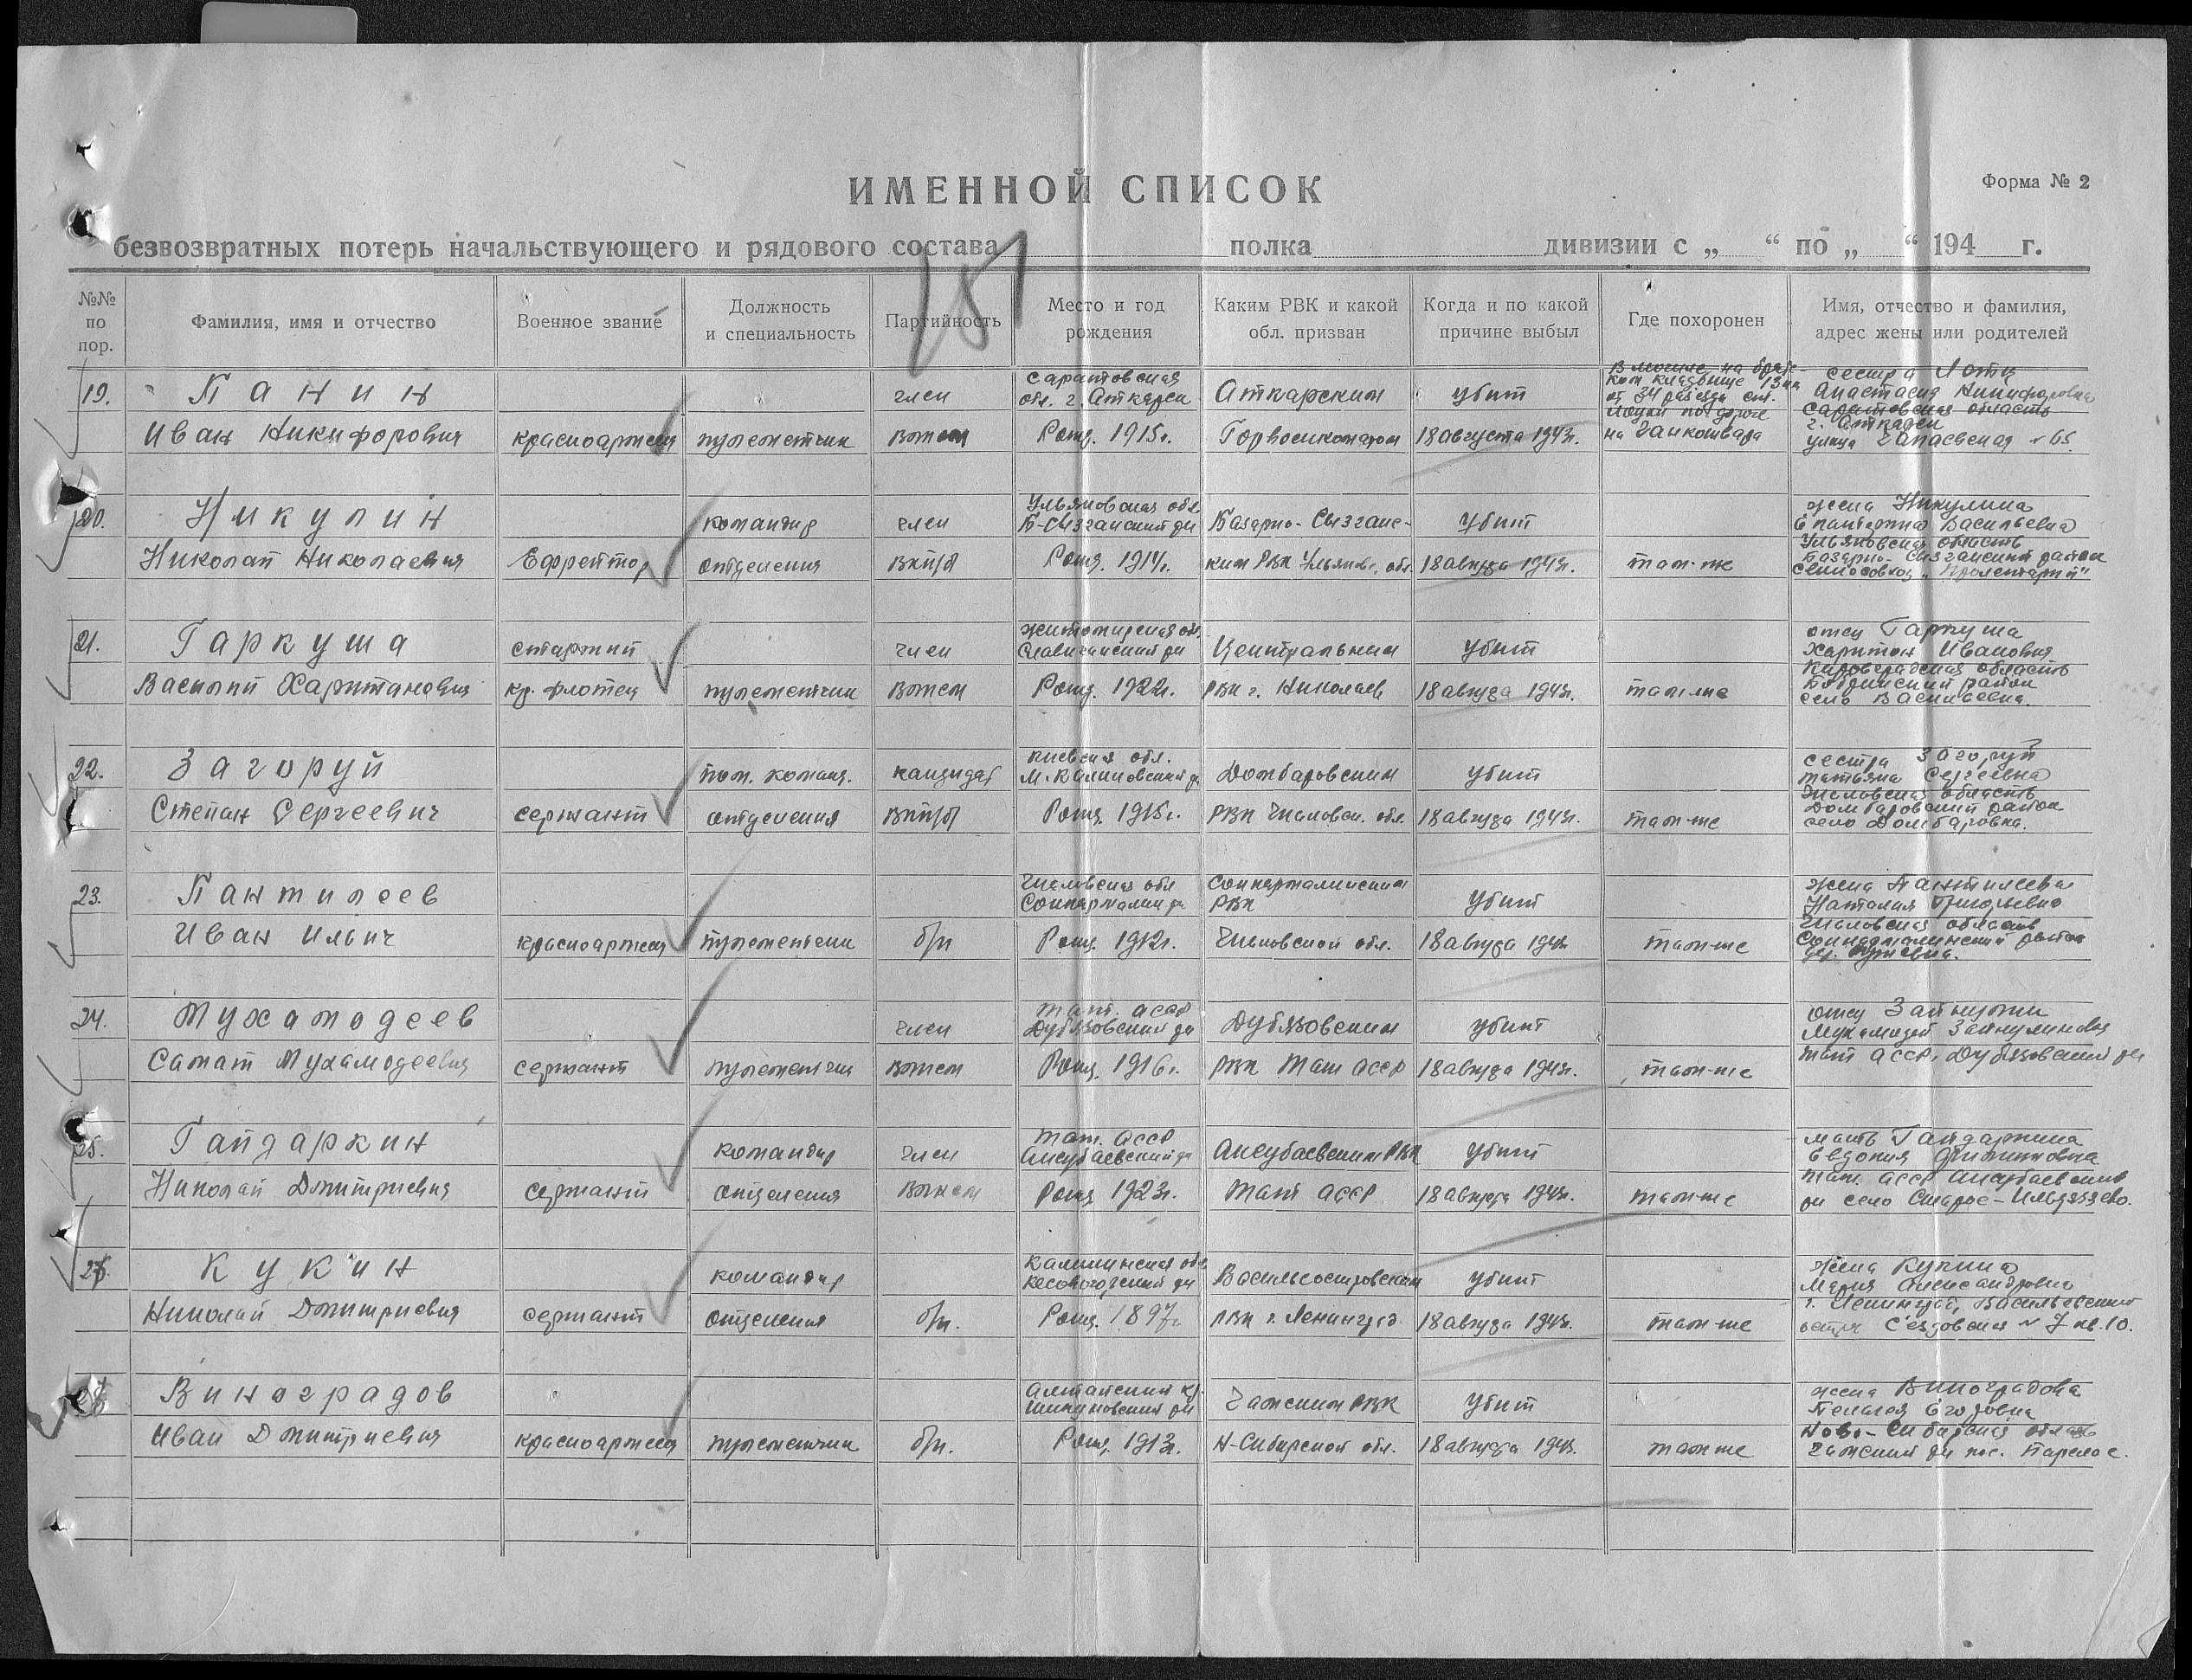 ИМЕННОЙ СПИСОК
Форма № 2
безвозвратных потерь начальствующего и рядового состава полка дивизии с „ “ по „ “ 194 г.
№№ по пор.
Фамилия, имя и отчество
Военное звание
Должность и специальность
Партийность
Место и год рождения
Каким РВК и какой обл. призван
Когда и по какой причине выбыл
Где похоронен
Имя, отчество и фамилия, адрес жены или родителей
19.
Панин
Иван Никифорович
красноармеец
пулеметчик
член
ВЛКСМ
Саратовская
обл. г. Аткарск
Рожд. 1915г.
Аткарским
Горвоенкоматом
убит
18 августа 1943г.
сестра
Анастасия Никифоровна
Саратовская область
г. Аткарск
улица Чапаевская 65
20.
Никулин
Николай Николаевич
Ефрейтор
командир
отделения
член
ВКП/б
Ульяновская обл
Б-Сызганский рн
Рожд. 1914г.
Базарно-Сызганс-
ким РВК Ульянов. обл.
убит
18 августа 1943г.
там-же
жена Никулина
Васильевна
Ульяновская область
Базарно-Сызганский район
21.
Гаркуша
Василий Хаританович
старший
кр. флотец
пулеметчик
член
ВЛКСМ
Житомирская обл.
Рожд. 1922г.
Центральным
РВК г. Николаев
убит
18 августа 1943г.
там-же
отец Гаркуша
Харитон Иванович
Кировоградская область
район
село Васильевка.
22.
Загоруй
Степан Сергеевич
сержант
пом. команд.
отделения
кандидат
ВКП/б
Киевская обл.
Рожд. 1915г.
Домбаровским
РВК Чкаловск. обл.
убит
18 августа 1943г.
там-же
сестра Загоруй
Татьяна Сергеевна
Чкаловская область
Домбаровский район
село Домбаровка.
23.
Пантилеев
Иван Ильич
красноармеец
пулеметчик
б/п
Чкаловская обл
Рожд. 1912г.
РВК
Чкаловской обл.
убит
18 августа 1943г
там-же
жена Пантилеева
Наталия Григорьевна
Чкаловская область
район
24.
Мухамодеев
Самат Мухамодеевич
сержант
пулеметчик
член
ВЛКСМ
Тат. АССР
Дубъязовский рн
Рожд. 1916г.
Дубъязовским
РВК Тат АССР
убит
18 августа 1943г.
там-же
отец
Тат АССР, Дубъязовский рн
25.
Гайдаркин
Николай Дмитриевич
сержант
командир
отделения
член
ВЛКСМ
Тат. АССР
Аксубаевский рн
Рожд 1923г.
Аксубаевским РВК
Тат АССР
убит
18 августа 1943г.
там-же
мать Гайдаркина
Евдокия
Тат. АССР Аксубаевский
рн село Старое-Ильдряково.
26.
Кукин
Николай Дмитриевич
сержант
командир
отделения
б/п.
Калининская обл
Кесовогорский рн
Рожд. 1897г.
Василеостровским
РВК г. Ленинград
убит
18 августа 1943г.
там-же
жена Кукина
Мария Александровна
г. Ленинград, Васильевский
остр. Съездовская № 7 кв. 10.
Виноградов
Иван Дмитриевич
красноармеец
пулеметчик
б/п.
Алтайский кр.
Шипуновский рн
Рожд. 1913г.
РВК
Н-Сибирской обл.
убит
18 августа 1943г.
там-же
жена Виноградова
Пелагея Егоровна
Ново-Сибирская область